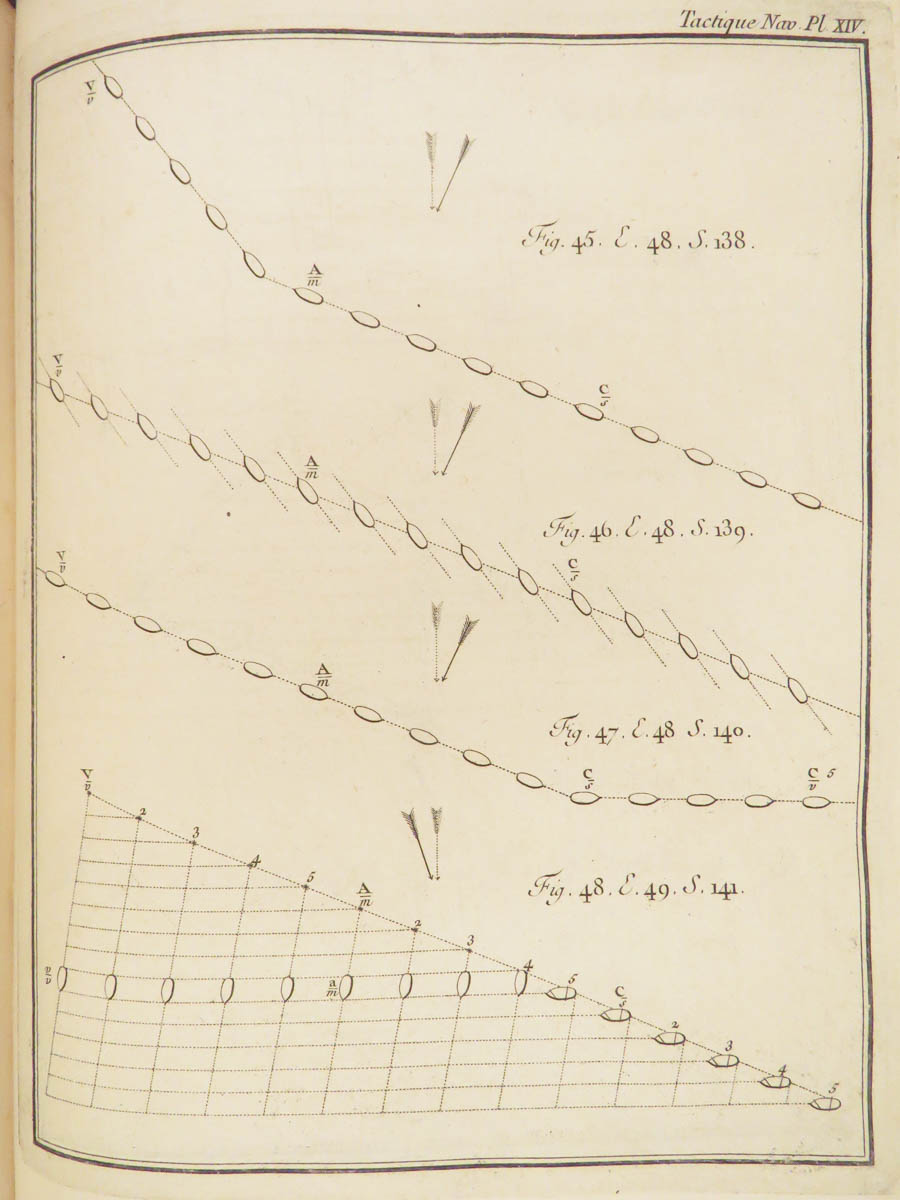 Tactique Nav. Pl. XIV.
V
v
Fig. 45. E. 48. S. 138.
A
m
V
v
C
s
A
m
Fig. 46. E. 48. S. 139.
V
v
C
s
A
m
Fig. 47. E. 48 S. 140.
V
v
C
s
C
v
5
2
3
4
5
A
m
Fig. 48. E. 49. S. 141.
2
3
4
v
v
a
m
5
C
s
2
3
4
5